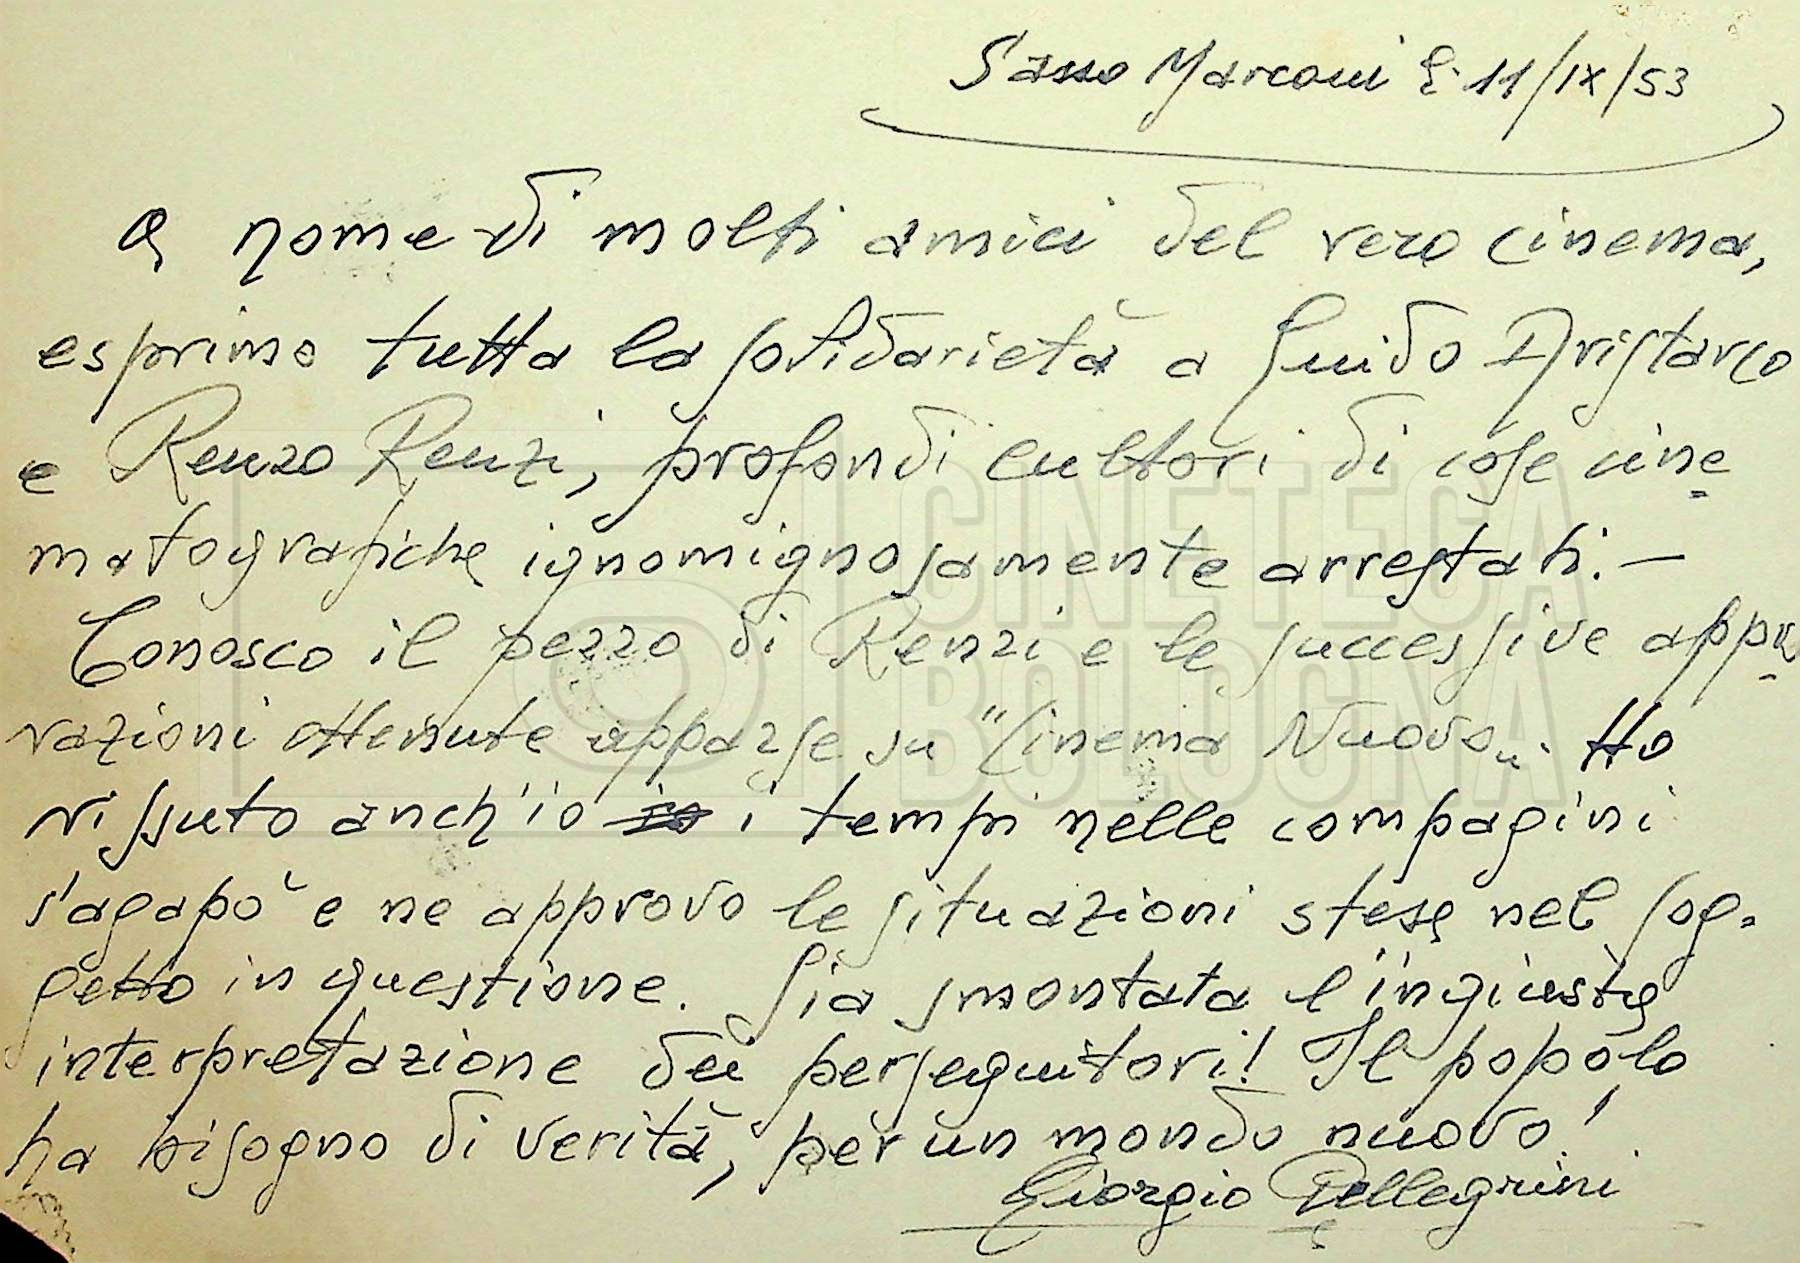 Sasso Marconi li 11/IX/53
A nome di molti amici del vero cinema,
esprimo tutta la solidarietà a Guido Aristarco
e Renzo Renzi, profondi cultori di cose cine=
matografiche ignomignosamente arrestati. —
Conosco il pezzo di Renzi e le successive appro=
vazioni ottenute apparse su "Cinema Nuovo". Ho
vissuto anch'io i tempi nelle compagini
s'agapò e ne approvo le situazioni stese nel sog=
getto in questione. Sia smontata l'ingiusta
interpretazione dei perseguitori! Il popolo
ha bisogno di verità, per un mondo nuovo!
Giorgio Pellegrini
CINETECA
BOLOGNA